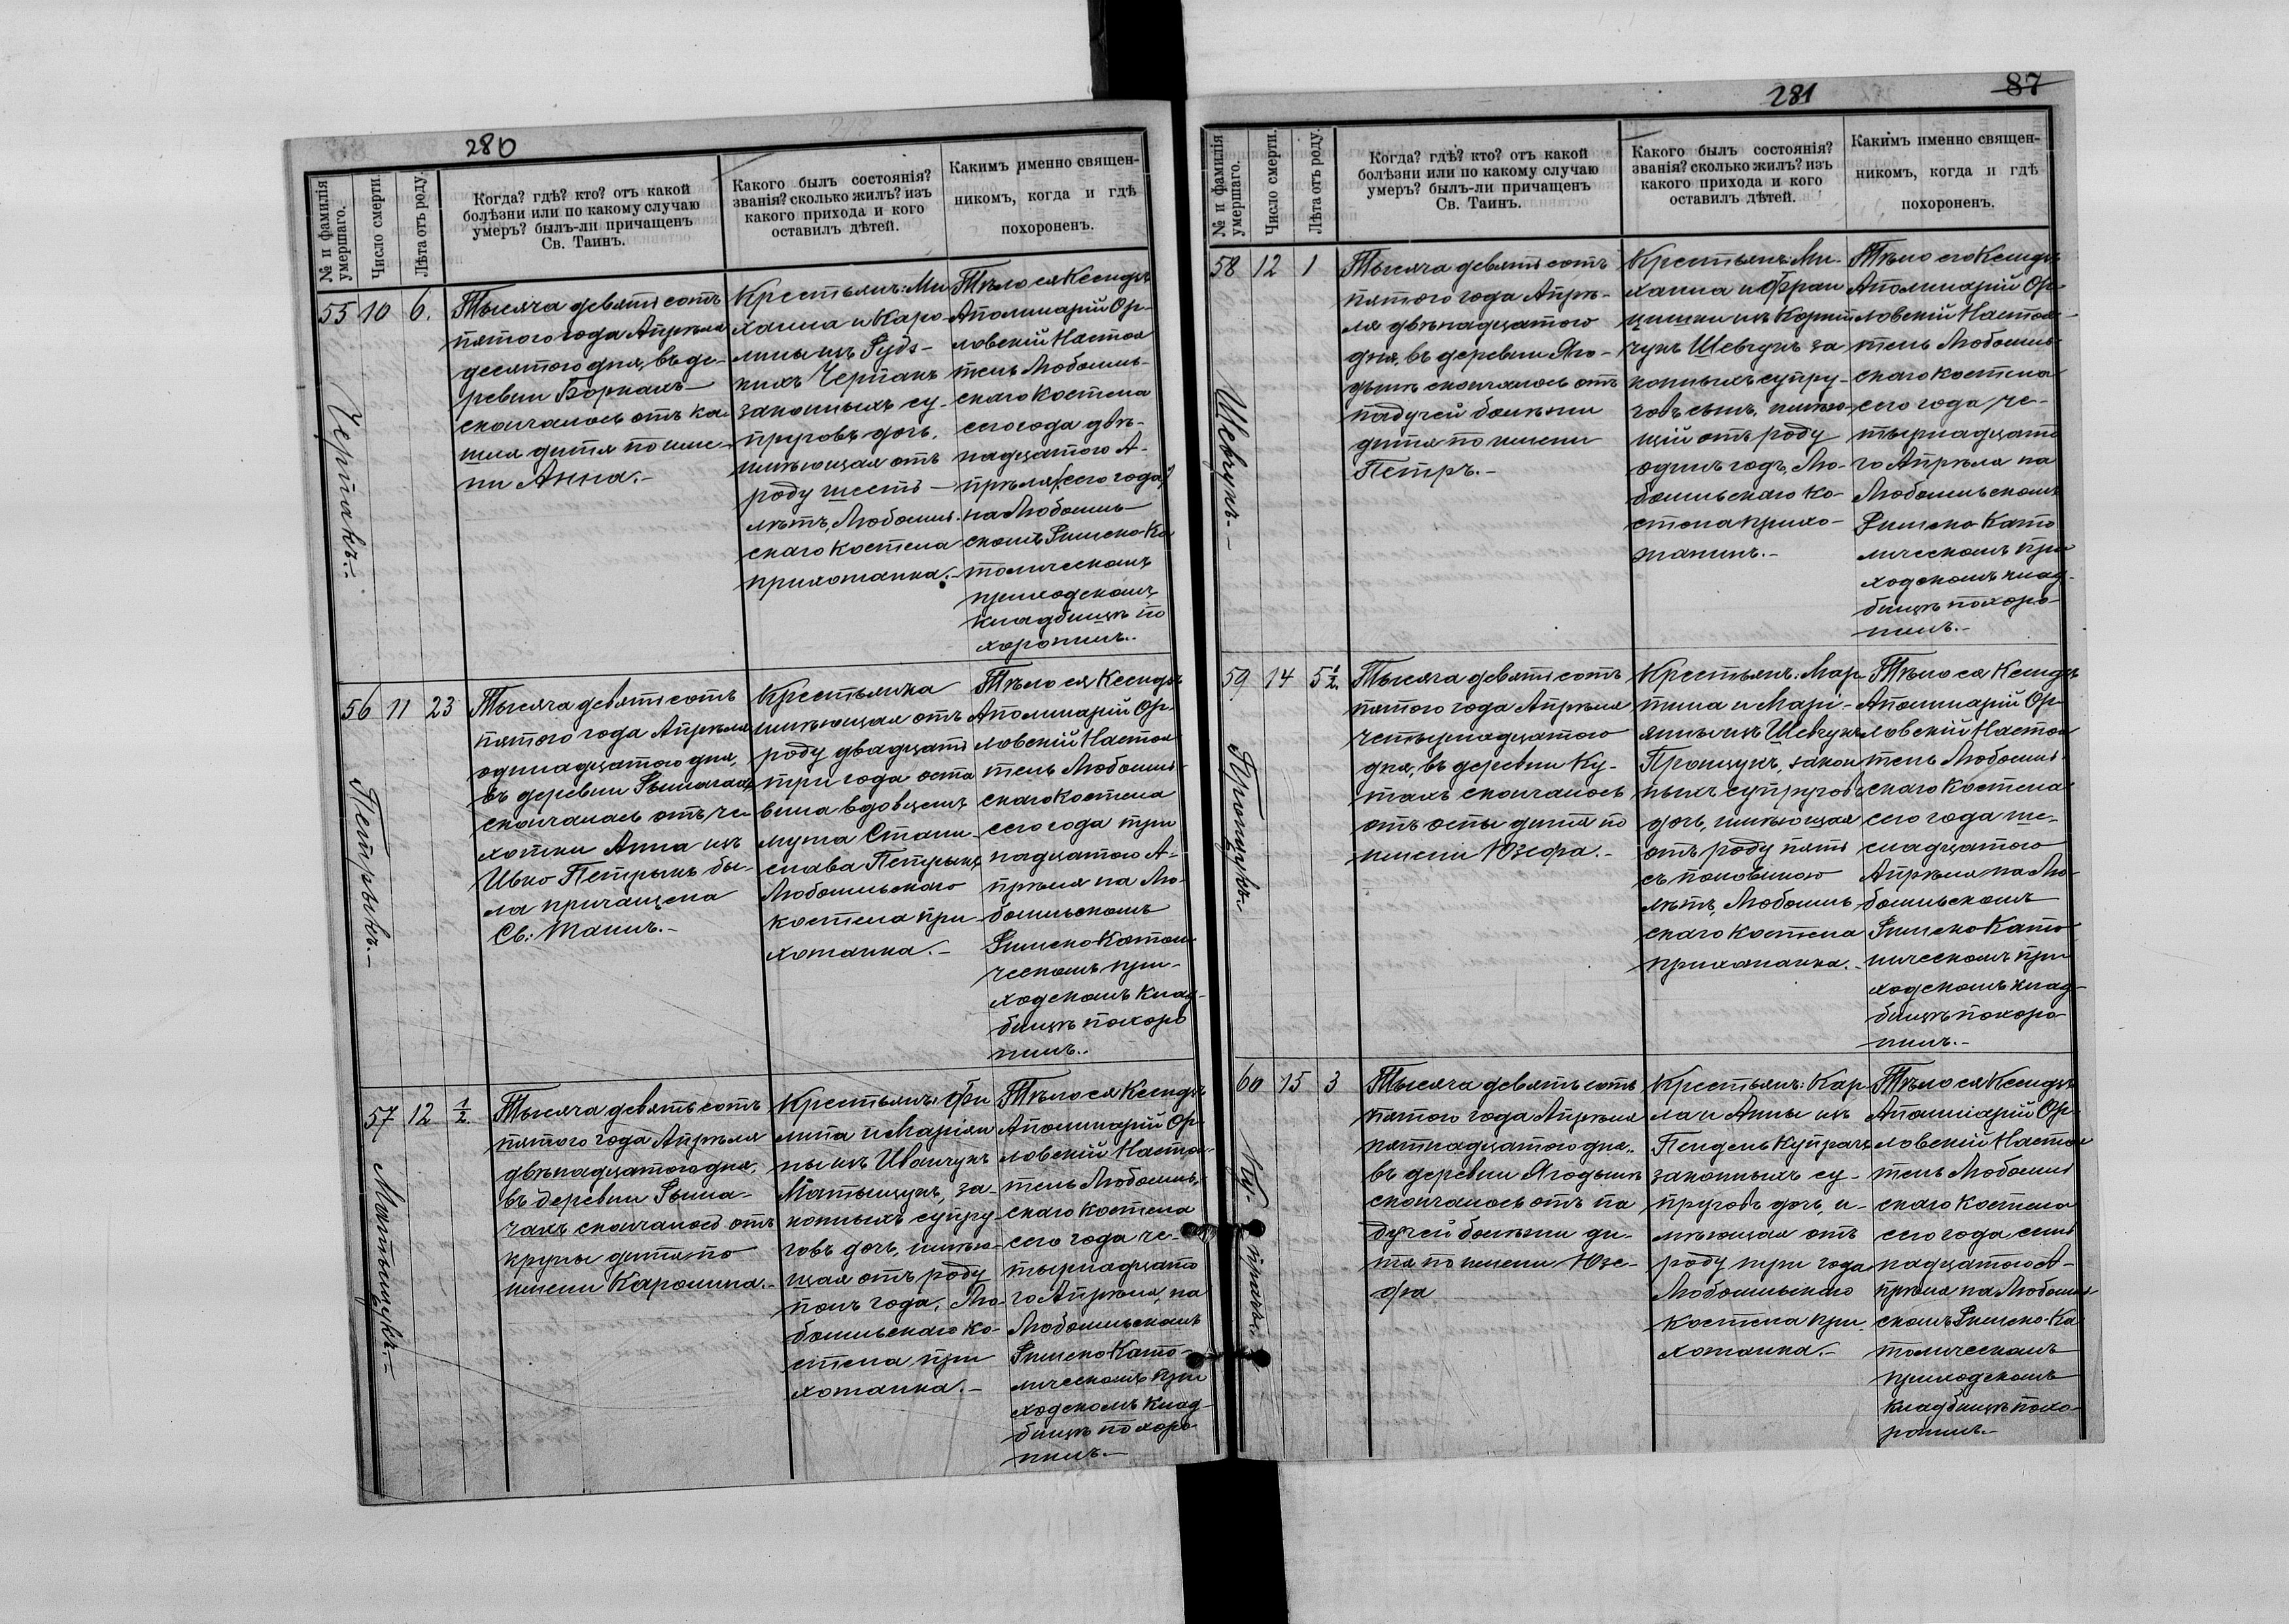 280
№ и фамилія умершаго.
Число смерти.
Лѣта отъ роду.
Когда? гдѣ? кто? отъ какой
болѣзни или по какому случаю
умеръ? былъ-ли причащенъ
Св. Таинъ.
Какого былъ состоянія?
званія? сколько жилъ? изъ
какого прихода и кого
оставилъ дѣтей.
Какимъ именно священ-
никомъ, когда и гдѣ
похороненъ.
55 10 6.
Черпакъ.-
Тысяча девятьсотъ
пятого года Апрѣля
десятого дня, въ де-
ревни Боркахъ
скончалось отъ ка-
шля дитя по име-
ни Анна.-
Крестьянъ: Ми
хаила и Каро-
лины изъ Гудз-
кихъ Черпакъ
законныхъ су-
пруговъ дочь,
имѣющая отъ
роду шесть
лѣтъ, Любомль-
скаго костела
прихожанка.-
Тѣло ея Ксендзъ
Аполинарій Ор-
ловскій Настоя
тель Любомль-
скаго костела
сего года двѣ-
надцатого А-
прѣля (сего года)
на Любомль-
скомъ Римско-Ка
толическомъ
приходскомъ
кладбищѣ по
хоронилъ.
56 11 23
Петрыкъ.-
Тысяча девятьсотъ
пятого года Апрѣля
одинадцатого дня,
въ деревни Рымачахъ
скончалась отъ ча
хотки Анна изъ
Ивко Петрыкъ бы-
ла причащена
Св: Таинъ.-
Крестьянка
имѣющая отъ
роду двадцать
три года оста
вила вдовцемъ
мужа Стани-
слава Петрыка,
Любомльскаго
костела при-
хожанка.-
Тѣло ея Ксендзъ
Аполинарій Ор-
ловскій Настоя
тель Любомль-
скаго костела
сего года три
надцатого А-
прѣля на Лю-
бомльскомъ
Римско Католи
ческомъ при-
ходскомъ клад-
бищѣ похоро
нилъ.
57 12 1/2.
Матыщукъ.-
Тысяча девятьсотъ
пятого года Апрѣля
двѣнадцатого дня,
въ деревни Рыма-
чахъ скончалось отъ
крупы дитя по
имени Каролина.-
Крестьянъ: Фи
липа и Маріян
ны изъ Иванчукъ
Матыщукъ, за-
конныхъ супру-
говъ дочь, имѣю-
щая отъ роду
полъ года, Лю-
бомльскаго ко-
стела при
хожанка.-
Тѣло ея Ксендзъ
Аполинарій Ор-
ловскій Настоя-
тель Любомль-
скаго костела
сего года че-
тырнадцато
го Апрѣля, на
Любомльскомъ
Римско Като-
лическомъ при
ходскомъ клад-
бищѣ похоро-
нилъ.-
281
87
№ и фамилія умершаго.
Число смерти.
Лѣта отъ роду.
Когда? гдѣ? кто? отъ какой
болѣзни или по какому случаю
умеръ? былъ-ли причащенъ
Св. Таинъ.
Какого былъ состоянія?
званія? сколько жилъ? изъ
какого прихода и кого
оставилъ дѣтей.
Какимъ именно священ-
никомъ, когда и гдѣ
похороненъ.
58 12 1
Шевчукъ.-
Тысяча девятьсотъ
пятого года Апрѣ-
ля двѣнадцатого
дня, въ деревни Яго-
дынѣ скончалось отъ
падучей болѣзни
дитя по имени
Петръ.-
Крестьянъ: Ми-
хаила и Фран
цишки изъ Корній
чукъ Шевчукъ за
конныхъ супру-
говъ сынъ, имѣю-
щій отъ роду
одинъ годъ, Лю-
бомльскаго ко-
стела прихо-
жанинъ.-
Тѣло его Ксендзъ
Аполинарій Ор-
ловскій Настоя-
тель Любомль-
скаго костела
сего года че-
тырнадцато
го Апрѣля на
Любомльскомъ
Римско Като
лическомъ при
ходскомъ клад-
бищѣ похоро-
нилъ.-
59 14 5 1/2.
Прошукъ.-
Тысяча девятьсотъ
пятого года Апрѣля
четырнадцатого
дня, въ деревни Ку-
тахъ скончалось
отъ оспы дитя по
имени Юзефа.-
Крестьянъ: Мар
тина и Марі-
янны изъ Шевчукъ
Прощукъ, закон
ныхъ супруговъ
дочь, имѣющая
отъ роду пять
съ половиною
лѣтъ, Любомль-
скаго костела
прихожанка.-
Тѣло ея Ксендзъ
Аполинарій Ор-
ловскій Настоя
тель Любомль-
скаго костела
сего года ше-
снадцатого
Апрѣля на Лю-
бомльскомъ
Римско Като
лическомъ при
ходскомъ клад-
бищѣ похоро-
нилъ.-
60 15 3
Ку-прачъ.-
Тысяча девятьсотъ
пятого года Апрѣля
пятнадцатого дня,
въ деревни Ягодынѣ
скончалось отъ па
дучей болѣзни ди-
тя по имени Юзе-
фа
Крестьянъ: Кар
ла и Анны изъ
Пендель Купрачъ
законныхъ су-
пруговъ дочь, и-
мѣющая отъ
роду три года
Любомльскаго
костела при-
хожанка.-
Тѣло ея Ксендзъ
Аполинарій Ор-
ловскій Настоя
тель Любомль
скаго костела
сего года семь
надцатого А-
прѣля на Любомль-
скомъ Римско-Ка
толическомъ
приходскомъ
кладбищѣ похо-
ронилъ.-